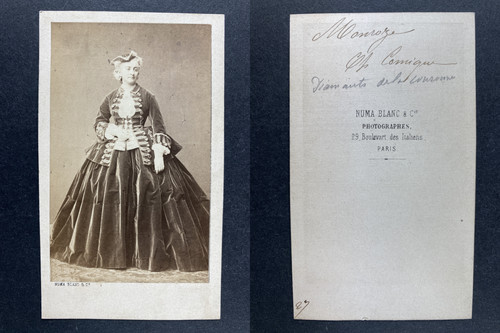 NUMA BLANC & Cie
Monroze
Th Comique
Diamants de la couronne
NUMA BLANC & Cie
PHOTOGRAPHES,
29, Boulevart des Italiens
PARIS